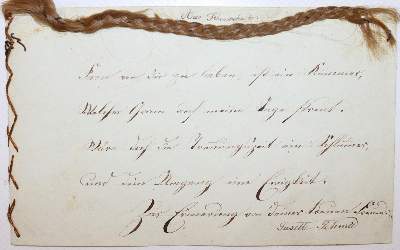 Fern von dir zu leben, ist ein Kummer,
Welcher Gram auf meine Tage streut.
Wär doch die Trennungszeit ein Schlummer,
und dein Umgang eine Ewigkeit.
Zur Erinnerung an deinen treuen Freund